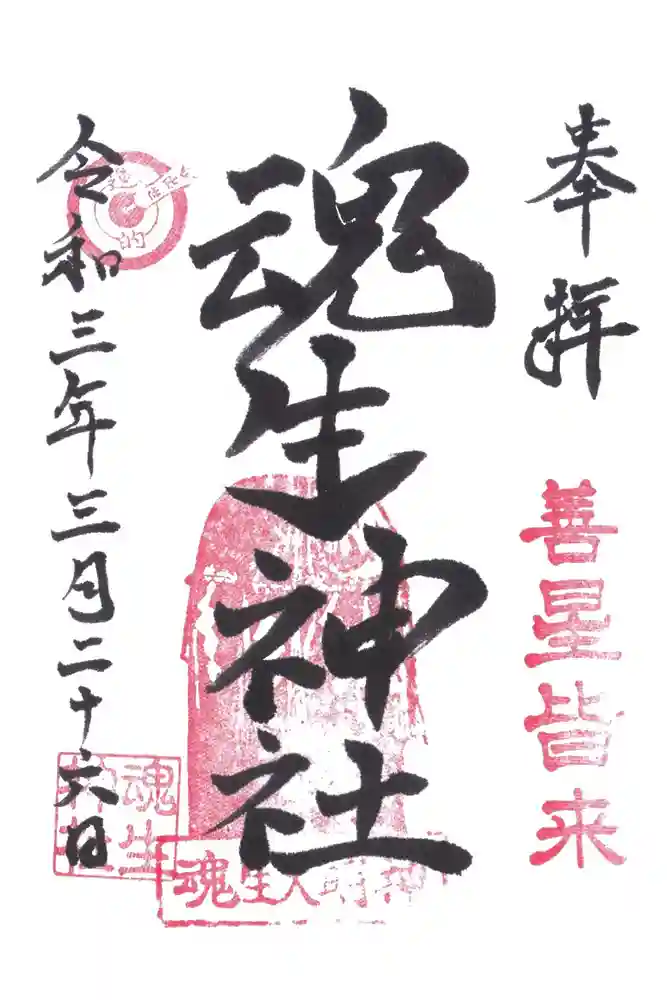 奉拝
善星皆来
魂生神社
令和三年三月二十六日
的
魂生神社
魂生大明神